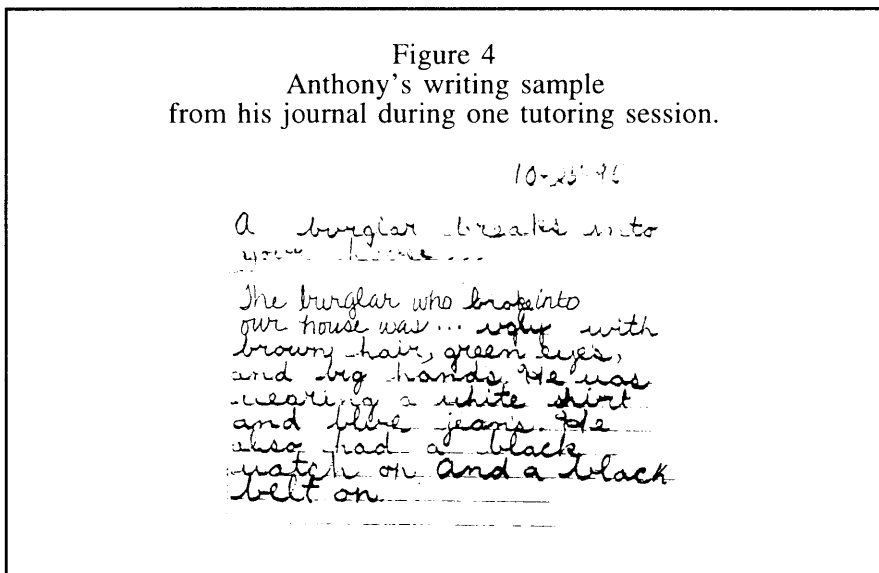 Figure 4
Anthony's writing sample
from his journal during one tutoring session.
A burglar breaks into
your home...
The burglar who broke into
our house was... ugly with
brown hair, green eyes,
and big hands. He was
wearing a white shirt
and blue jeans. He
also had a black
watch on and a black
belt on